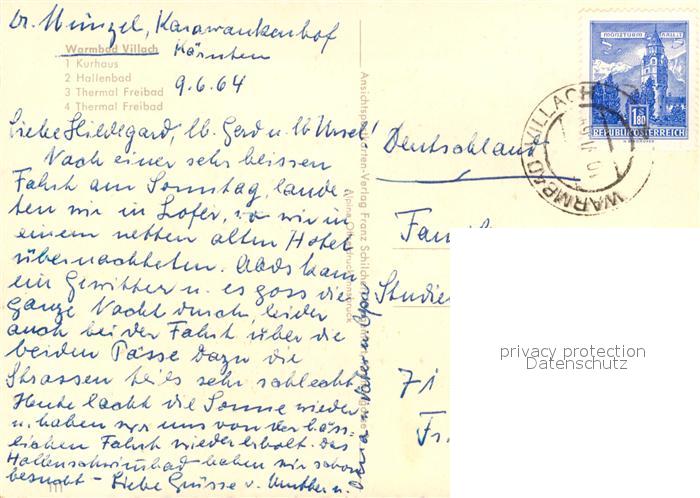 Dr. Münzel, Karawankenhof
Kärnten
Warmbad Villach
1 Kurhaus
2 Hallenbad
3 Thermal Freibad
4 Thermal Freibad
9.6.64
Liebe Hildegard, lb. Gerd u. lb Ursel!
Nach einer sehr heissen
Fahrt am Sonntag, lande-
ten wir in Lofer, wo wir in
einem netten alten Hotel
übernachteten. Abds kam
ein Gewitter u. es goss die
ganze Nacht durch, leider
auch bei der Fahrt über die
beiden Pässe dazu die
Strassen teils sehr schlecht
Heute lacht die Sonne wieder
u. haben wir uns von der häss-
lichen Fahrt wieder erholt. Das
Hallenschwimbad haben wir schon
besucht - Liebe Grüsse v. Mutter u.
Oma u. Vater u. Opa
Ansichtspostkarten-Verlag Franz Schilcher
Alpine
MÜNZTURM HALL I. T.
S 1.80
REPUBLIK ÖSTERREICH
WARMBAD VILLACH
Deutschland
Fam
Studie
71
Fr.
privacy protection
Datenschutz